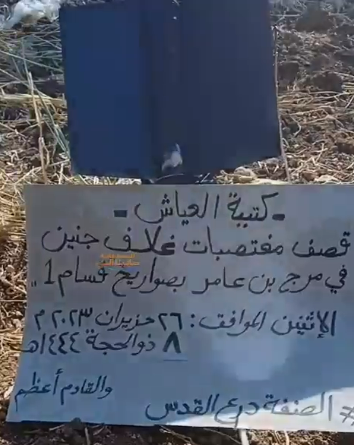 - كتيبة العياش -
قصف مغتصبات غلاف جنين
في مرج بن عامر بصواريخ قسام 1
الإثنين الموافق: ٢٦ حزيران ٢٠٢٣ م
٨ ذوالحجة ١٤٤٤هـ
والقادم أعظم
# الضفة درع القدس